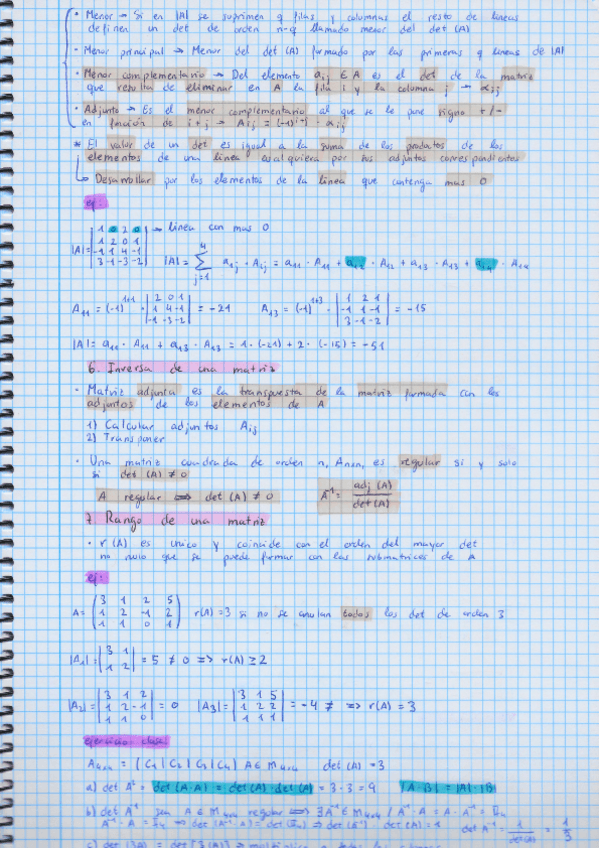 · Menor → Si en |A| se suprimen q filas y columnas el resto de lineas
definen un det de orden n-q llamado menor del det (A)
· Menor principal → Menor del det (A) formado por las primeras q lineas de |A|
· Menor complementario → Del elemento aij ∈ A es el det de la matriz
que resulta de eliminar en A la fila i y la columna j → αij
· Adjunto → Es el menor complementario al que se le pone signo +/-
en función de i+j → Aij = (-1)^i+j · αij
* El valor de un det es igual a la suma de los productos de los
elementos de una linea cualquiera por sus adjuntos correspondientes
↳ Desarrollar por los elementos de la linea que contenga mas 0
ej:
|A| = | 1 0 2 0 | → linea con mas 0
| 1 2 0 1 |
| -1 1 4 -1 |
| 3 -1 -3 -2 |
|A| = Σ j=1 4 a1j · A1j = a11 · A11 + a12 · A12 + a13 · A13 + a14 · A14
A11 = (-1)^1+1 · | 2 0 1 | 1 4 -1 | -1 -3 -2 | = -21 A13 = (-1)^1+3 · | 1 2 1 | -1 1 -1 | 3 -1 -2 | = -15
|A| = a11 · A11 + a13 · A13 = 1 · (-21) + 2 · (-15) = -51
6. Inversa de una matriz
· Matriz adjunta es la transpuesta de la matriz formada con los
adjuntos de los elementos de A
1) Calcular adjuntos Aij
2) Transponer
· Una matriz cuadrada de orden n, Anxn, es regular si y solo
si det (A) ≠ 0
A regular ⟺ det (A) ≠ 0 A^-1 = adj (A) / det (A)
7. Rango de una matriz
· r (A) es unico y coincide con el orden del mayor det
no nulo que se puede formar con las submatrices de A
ej:
A = ( 3 1 2 5 | 1 2 -1 2 | 1 1 0 1 ) r(A) = 3 si no se anulan todos los det de orden 3
|A1| = | 3 1 | 1 2 | = 5 ≠ 0 ⟹ r(A) ≥ 2
|A2| = | 3 1 2 | 1 2 -1 | 1 1 0 | = 0 |A3| = | 3 1 5 | 1 2 2 | 1 1 1 | = -4 ≠ ⟹ r(A) = 3
ejercicio clase
A4x4 = (C1 | C2 | C3 | C4) A ∈ M4x4 det (A) = 3
a) det A² = det (A·A) = det (A) · det (A) = 3 · 3 = 9 |A·B| = |A| · |B
b) det A^-1 A ∈ M4x4 regular ⟺ ∃A^-1 ∈ M4x4 / A^-1 · A = A · A^-1 = I4
A^-1 · A = I4 ⟹ det (A^-1 · A) = det (I4) ⟹ det (A^-1) · det (A) = 1 det A^-1 = 1 / det(A) = 1/3
c) det (3A) = det